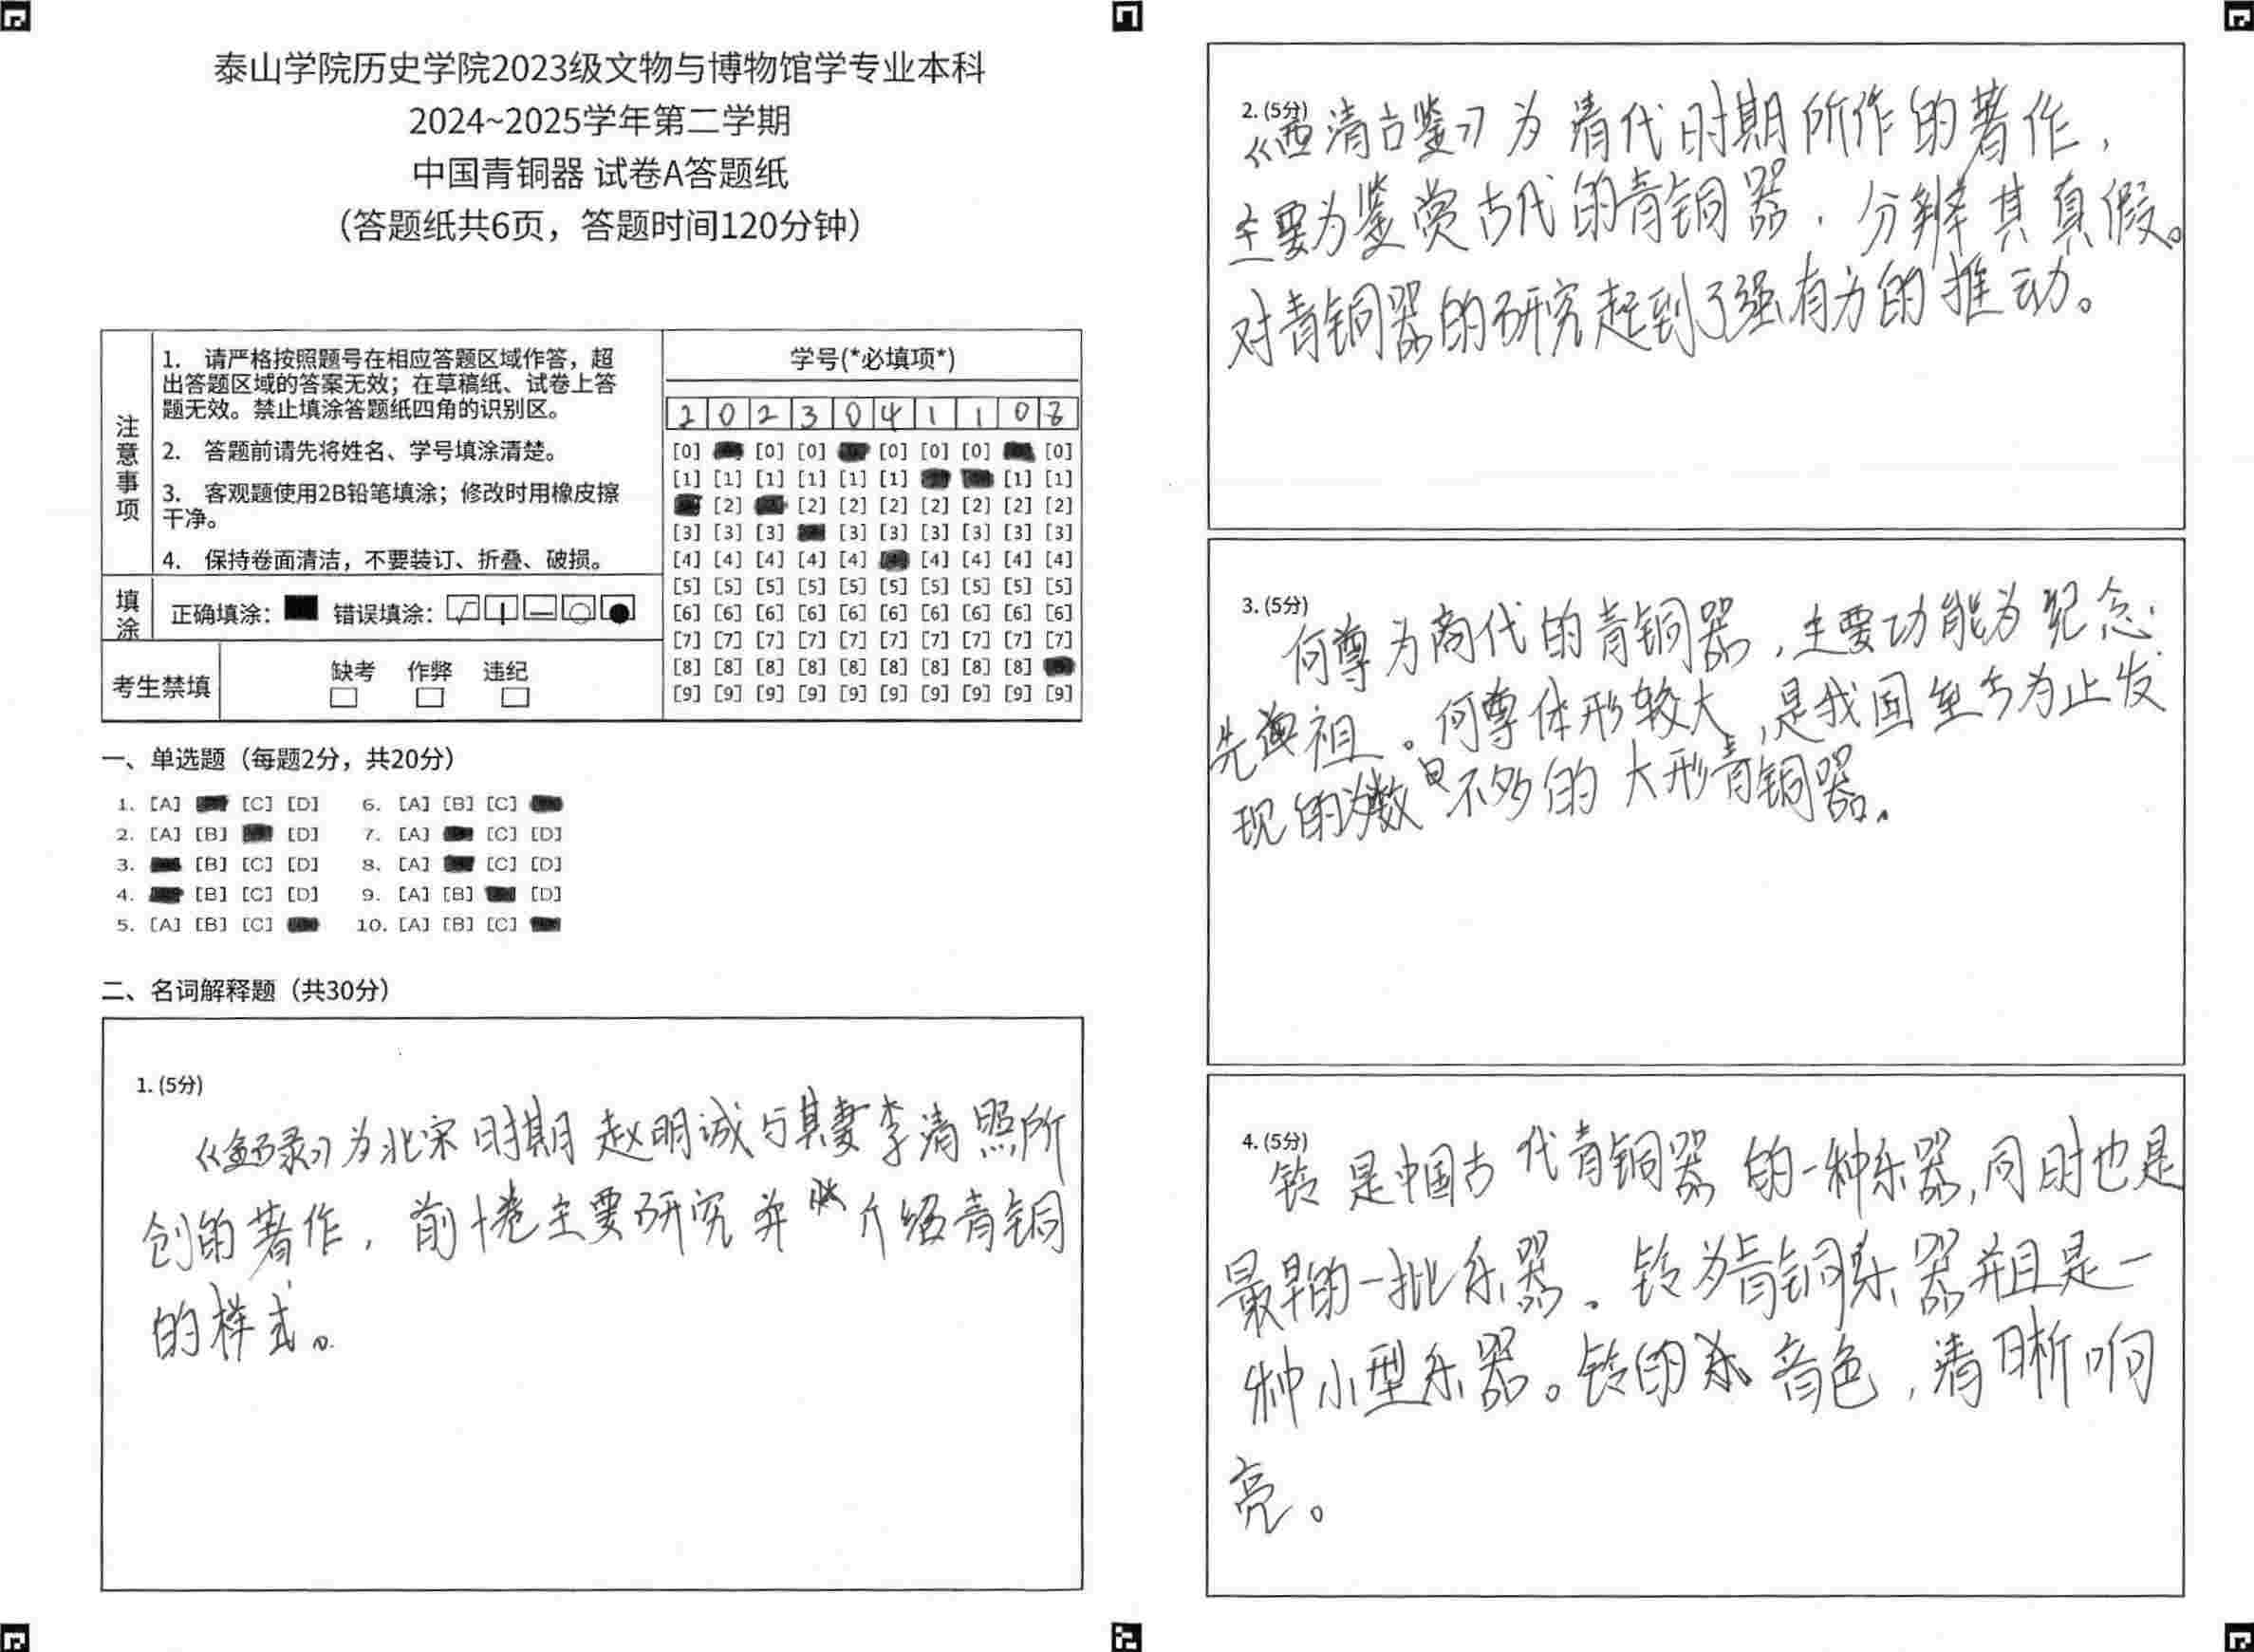 泰山学院历史学院2023级文物与博物馆学专业本科
2024~2025学年第二学期
中国青铜器 试卷A答题纸
（答题纸共6页，答题时间120分钟）
注意事项
1. 请严格按照题号在相应答题区域作答，超
出答题区域的答案无效；在草稿纸、试卷上答
题无效。禁止填涂答题纸四角的识别区。
2. 答题前请先将姓名、学号填涂清楚。
3. 客观题使用2B铅笔填涂；修改时用橡皮擦
干净。
4. 保持卷面清洁，不要装订、折叠、破损。
填涂 正确填涂： 错误填涂：
考生禁填 缺考 作弊 违纪
学号(*必填项*)
2 0 2 3 0 4 1 1 0 8
[0] [0] [0] [0] [0] [0] [0]
[1] [1] [1] [1] [1] [1] [1] [1]
[2] [2] [2] [2] [2] [2] [2] [2]
[3] [3] [3] [3] [3] [3] [3] [3] [3]
[4] [4] [4] [4] [4] [4] [4] [4] [4]
[5] [5] [5] [5] [5] [5] [5] [5] [5] [5]
[6] [6] [6] [6] [6] [6] [6] [6] [6] [6]
[7] [7] [7] [7] [7] [7] [7] [7] [7] [7]
[8] [8] [8] [8] [8] [8] [8] [8] [8]
[9] [9] [9] [9] [9] [9] [9] [9] [9] [9]
一、单选题（每题2分，共20分）
1. [A] [C] [D] 6. [A] [B] [C]
2. [A] [B] [D] 7. [A] [C] [D]
3. [B] [C] [D] 8. [A] [C] [D]
4. [B] [C] [D] 9. [A] [B] [D]
5. [A] [B] [C] 10. [A] [B] [C]
二、名词解释题（共30分）
1. (5分)
《金石录》为北宋时期赵明诚与其妻李清照所
创的著作，前十卷主要研究并介绍青铜
的样式。
2. (5分)
《西清古鉴》为清代时期所作的著作，
主要为鉴赏古代的青铜器，分辨其真假。
对青铜器的研究起到了强有力的推动。
3. (5分)
何尊为商代的青铜器，主要功能为纪念
先祖。何尊体形较大，是我国至今为止发
现的为数不多的大形青铜器。
4. (5分)
铃是中国古代青铜器的一种乐器，同时也是
最早的一批乐器。铃为青铜乐器并且是一
种小型乐器。铃的音色，清晰响
亮。